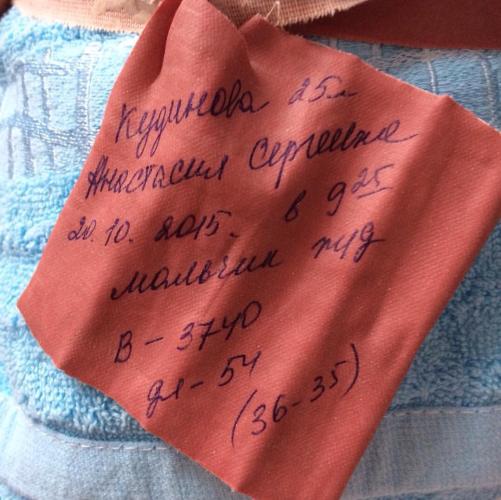 Кудинова 25л
Анастасия Сергеевна
20.10.2015. в 9 25
мальчик
В - 3740
дл - 54
(36-35)